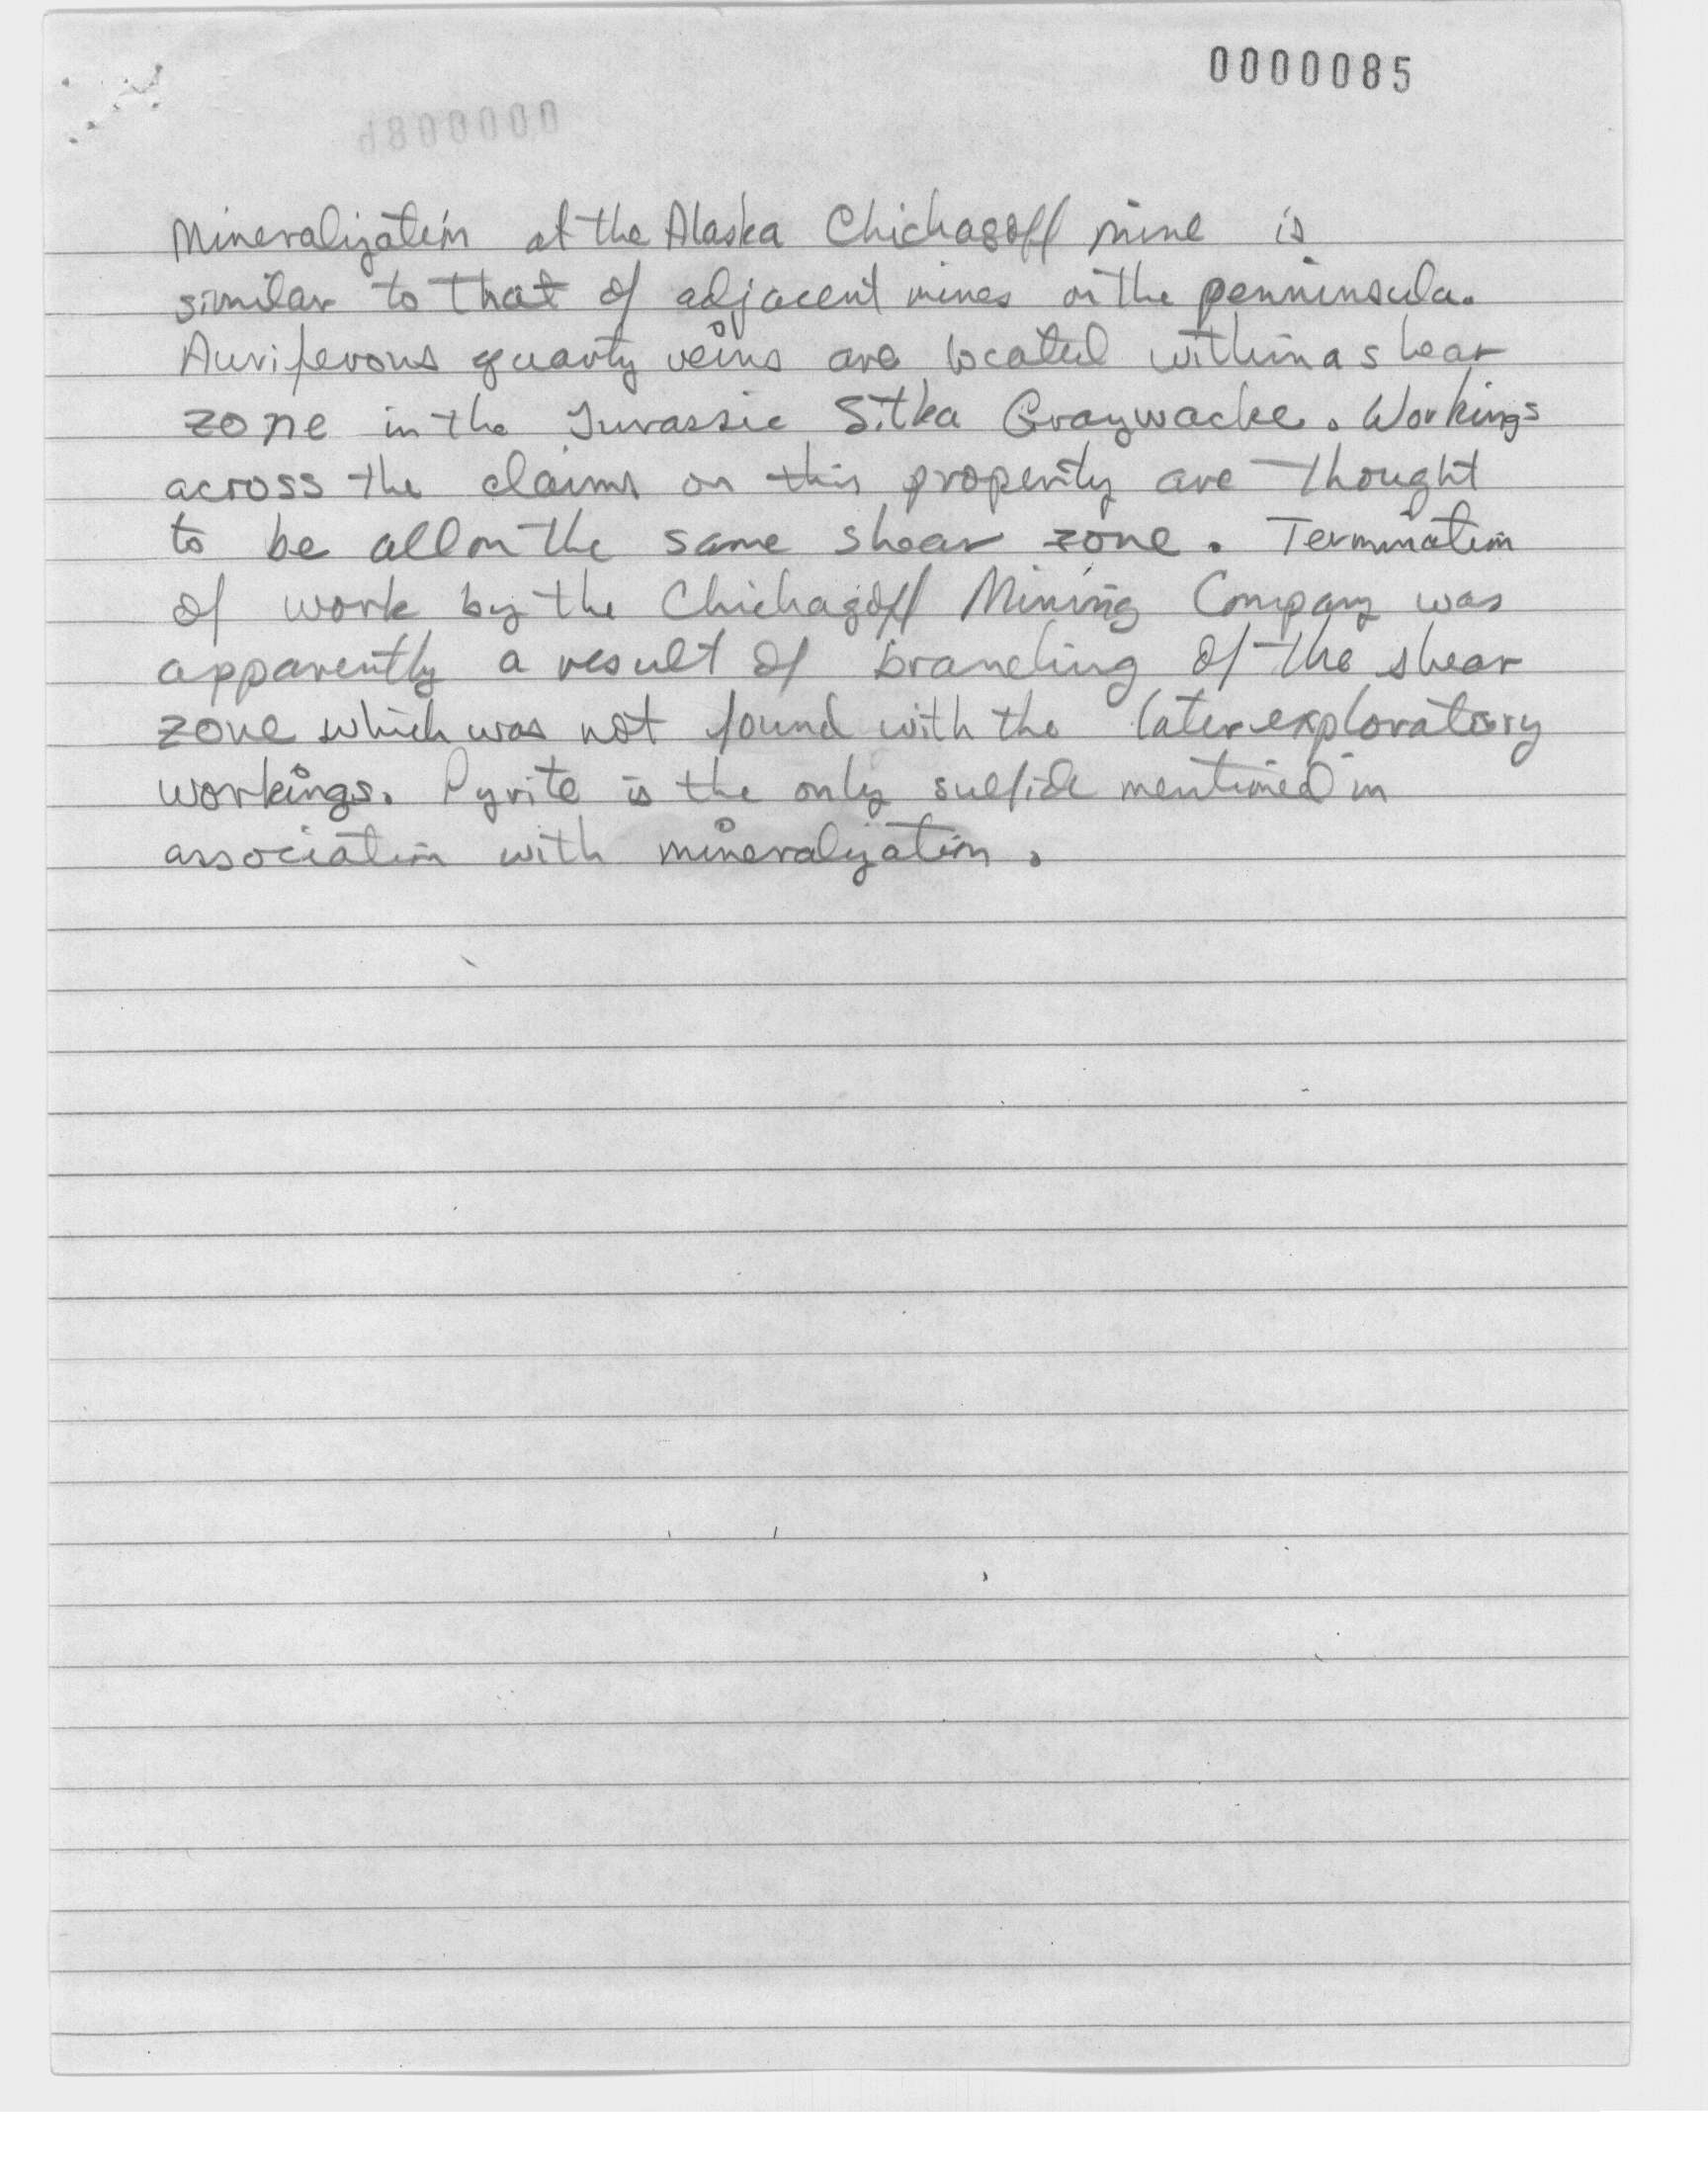 0000085
Mineralization at the Alaska Chichagoff mine is
similar to that of adjacent mines on the penninsula.
Auriferous quartz veins are located within a shear
zone in the Jurassic Sitka Graywacke. Workings
across the claims on this property are thought
to be all on the same shear zone. Termination
of work by the Chichagoff Mining Company was
apparently a result of branching of the shear
zone which was not found with the later exploratory
workings. Pyrite is the only sulfide mentioned in
association with mineralization.